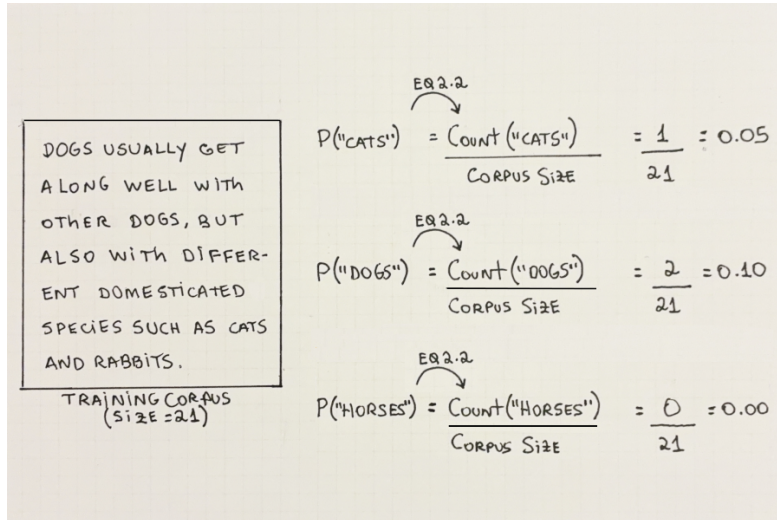 DOGS USUALLY GET
ALONG WELL WITH
OTHER DOGS, BUT
ALSO WITH DIFFER-
ENT DOMESTICATED
SPECIES SUCH AS CATS
AND RABBITS.
TRAINING CORPUS
(SIZE = 21)
EQ 2.2
P("CATS") = COUNT("CATS") / CORPUS SIZE = 1 / 21 = 0.05
EQ 2.2
P("DOGS") = COUNT("DOGS") / CORPUS SIZE = 2 / 21 = 0.10
EQ 2.2
P("HORSES") = COUNT("HORSES") / CORPUS SIZE = 0 / 21 = 0.00